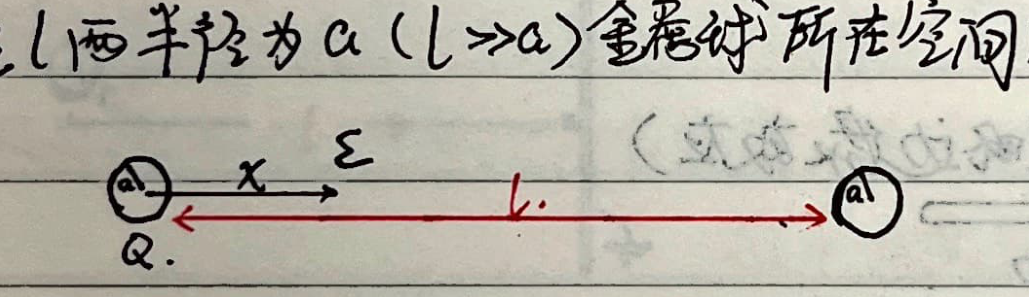 l 两半径为 a (l>>a) 金属球所在空间
a x ε l. a
Q.